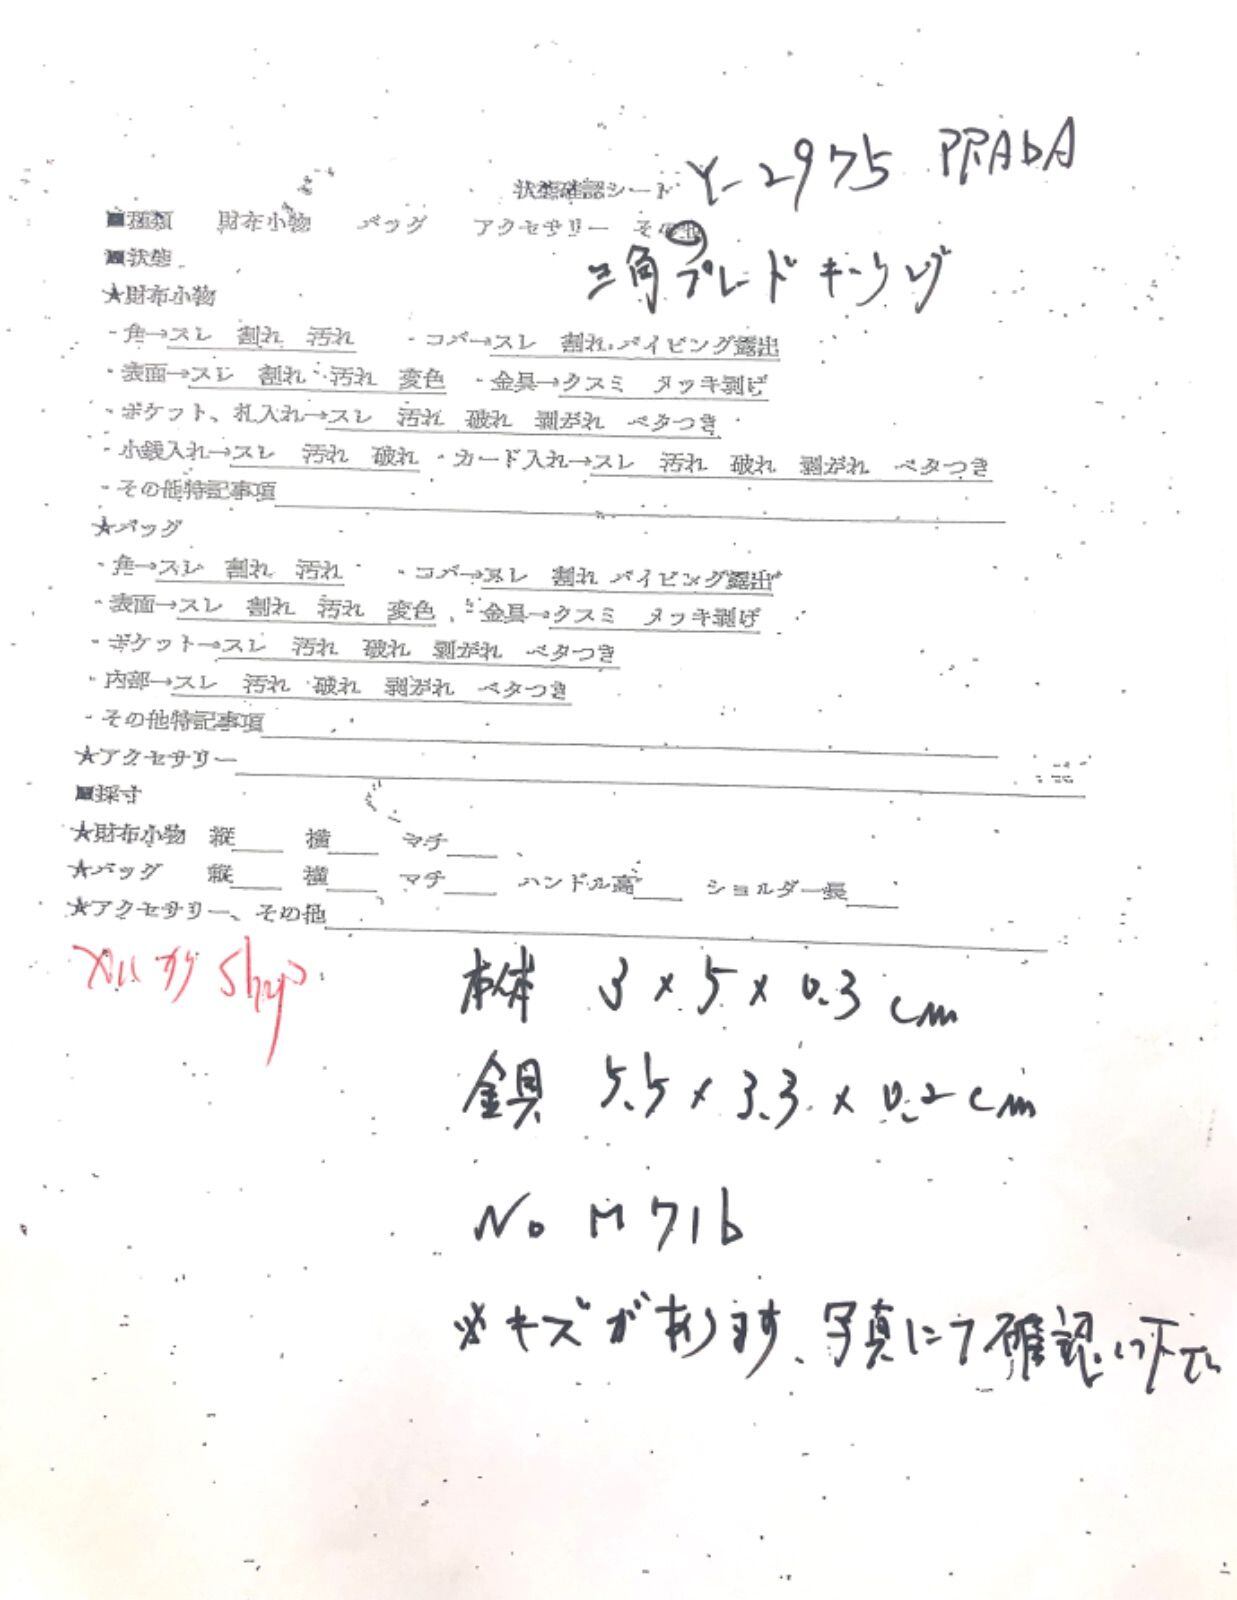 状態確認シート Y-2975 PRADA
■種類 財布小物 バッグ アクセサリー その他
三角プレードキーリング
■状態
★財布小物
・角→スレ 割れ 汚れ ・コバ→スレ 割れ パイピング露出
・表面→スレ 割れ 汚れ 変色 ・金具→クスミ メッキ剥げ
・ポケット、札入れ→スレ 汚れ 破れ 剥がれ ベタつき
・小銭入れ→スレ 汚れ 破れ ・カード入れ→スレ 汚れ 破れ 剥がれ ベタつき
・その他特記事項
★バッグ
・角→スレ 割れ 汚れ ・コバ→スレ 割れ パイピング露出
・表面→スレ 割れ 汚れ 変色 ・金具→クスミ メッキ剥げ
・ポケット→スレ 汚れ 破れ 剥がれ ベタつき
・内部→スレ 汚れ 破れ 剥がれ ベタつき
・その他特記事項
★アクセサリー
■採寸
★財布小物 縦 横 マチ
★バッグ 縦 横 マチ ハンドル高 ショルダー長
★アクセサリー、その他
メルカリ Shop
本体 3×5×0.3cm
金具 5.5×3.3×0.2cm
No M716
※キズがあります、写真にて確認して下さい